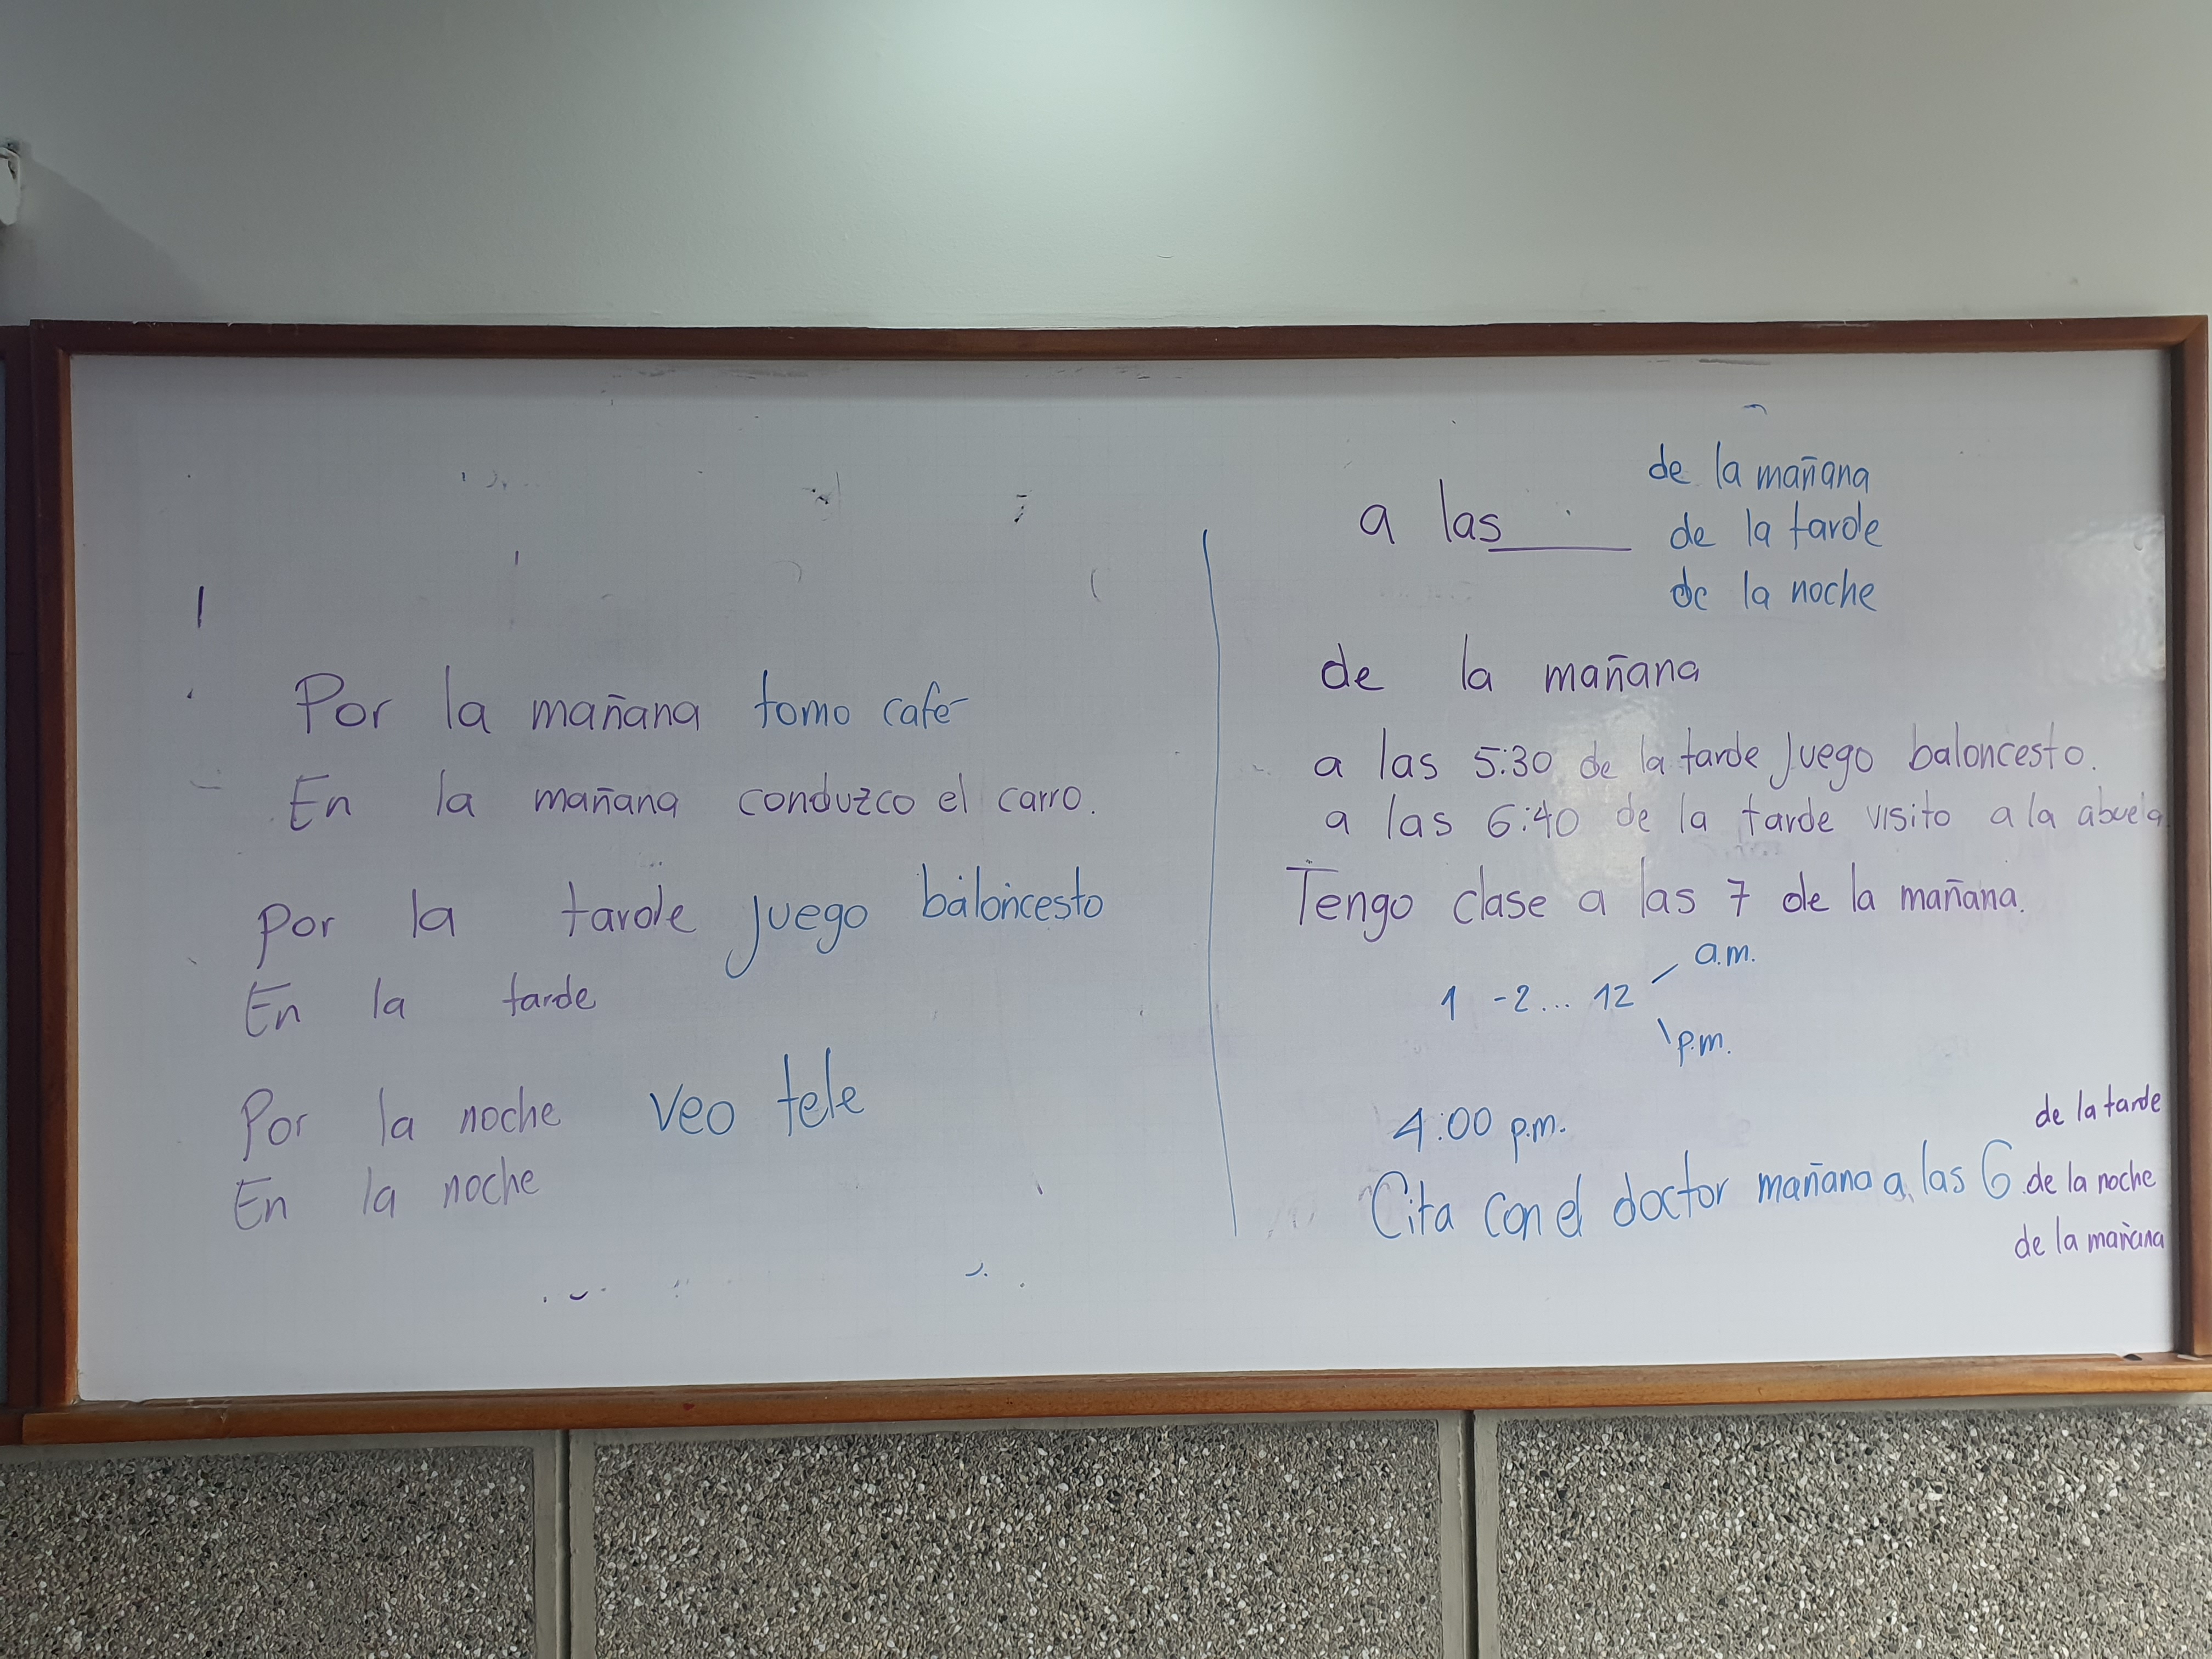 Por la mañana tomo café
En la mañana conduzco el carro.
Por la tarde juego baloncesto
En la tarde
Por la noche veo tele
En la noche
a las____
de la mañana
de la tarde
de la noche
de la mañana
a las 5:30 de la tarde juego baloncesto.
a las 6:40 de la tarde visito a la abuela
Tengo clase a las 7 de la mañana.
1 -2... 12
a.m.
p.m.
4:00 p.m.
Cita con el doctor mañana a las 6
de la tarde
de la noche
de la mañana